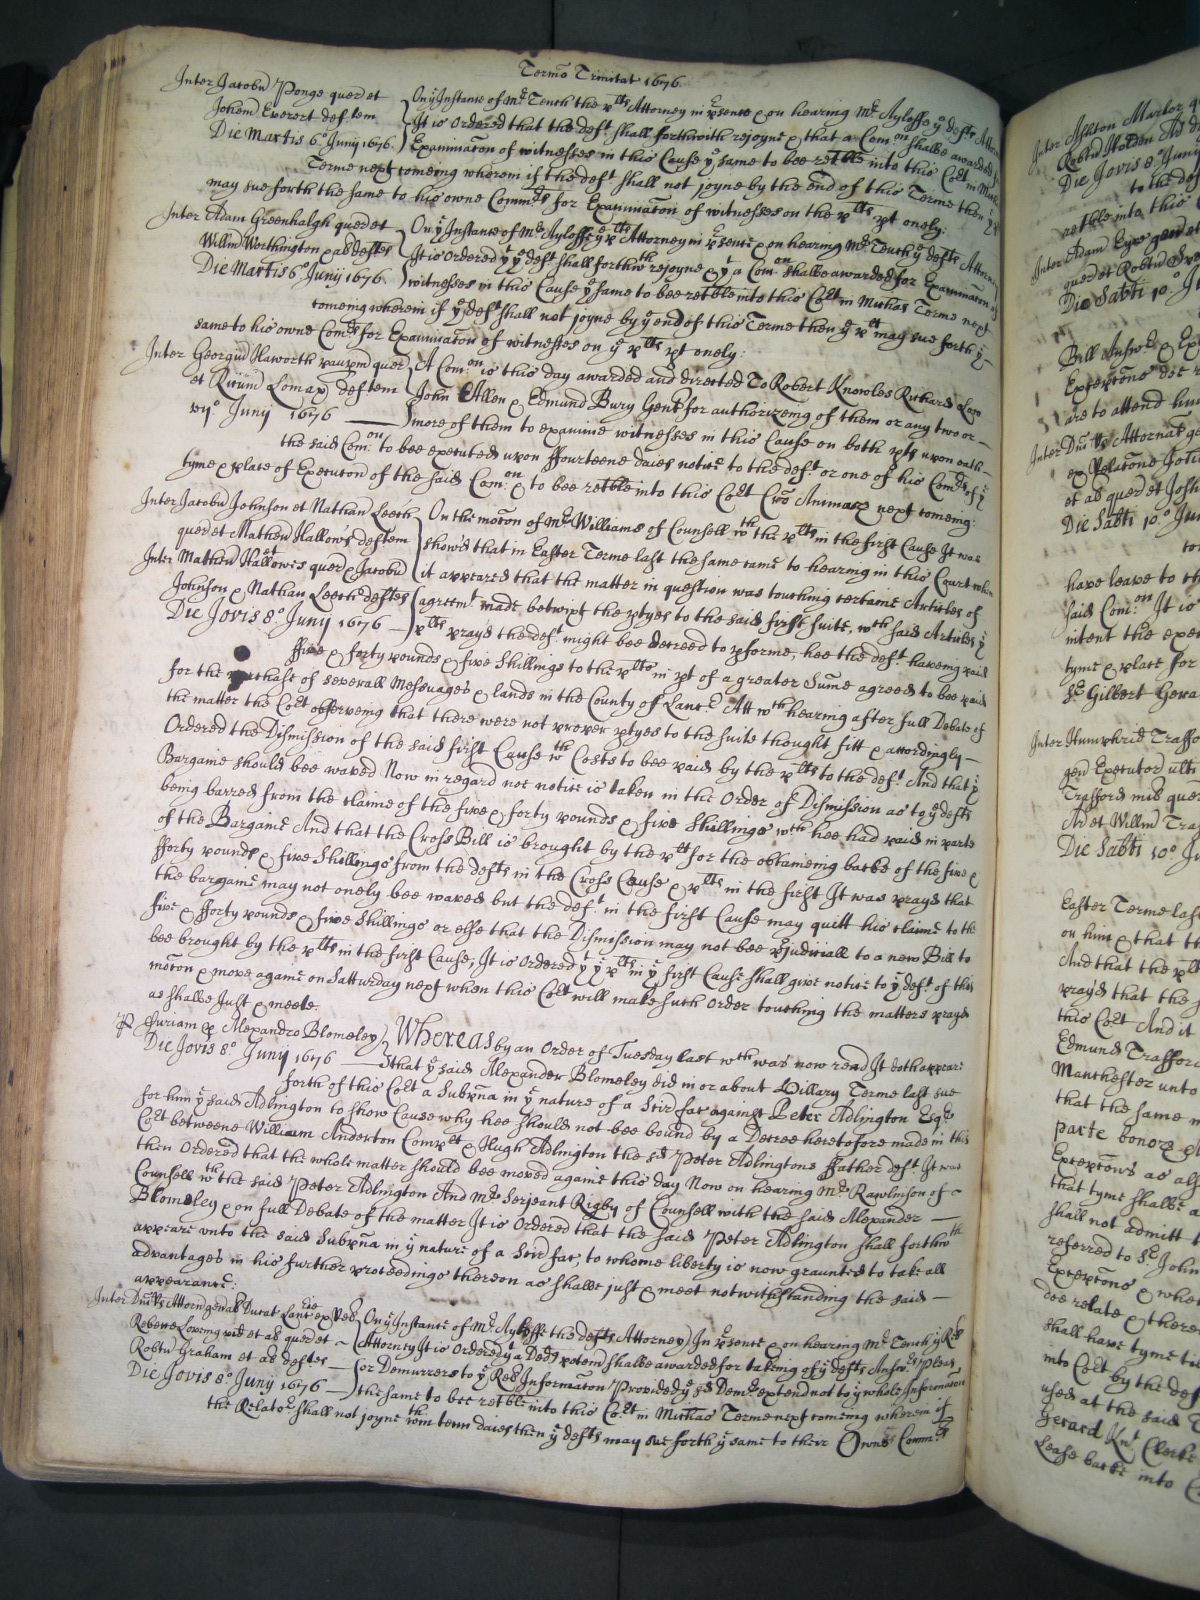 Termo Trinitat 1676
Inter Jacobu Ponge quer et
Johem Everert def.tem
Die Martis 6o Junij 1676.
On ye Instance of Mr Tench the plts Attorney in psence & on hearing Mr Ayloffe ye defts Attor
It is Ordered that the deft shall forthwith rejoyne & that a Com:on shalbe awarded
Examinacon of witnesses in this Cause ye same to bee retble into this Cort in
Terme next comeing wherein if the deft shall not joyne by the end of this Terme then
may sue forth the same to his owne Commrs for Examinacon of witnesses on the plts pt onely:
Inter Adam Greenhalgh quer et
Willm Worthington & al deftes
Die Martis 6o Junij 1676
On ye Instance of Mr Ayloffe ye plts Attorney in psence & on hearing Mr Tench ye defts Attorn
It is Ordered yt ye deft shall forthwth rejoyne & yt a Com:on shalbe awarded for Examinacon of
witnesses in this Cause ye same to bee retble into this Cort in Michas Terme next
comeing wherein if ye deft shall not joyne by ye end of this Terme then ye plt may sue forth ye
same to his owne Comrs for Examinacon of witnesses on ye plts pt onely:
Inter Georgiu Haworth paupm quer
et Ricum Lomax deftem
vijo Junij 1676
A Com:on is this day awarded and directed To Robert Knowles Richard Low
John Allen & Edmund Bury Gent for authorizeing of them or any two or
more of them to examine witnesses in this Cause on both pts upon oath
the said Com:on to bee executed upon ffourteene daies notice to the deft or one of his Comrs of ye
tyme & place of Execucon of the said Com:on & to bee retble into this Cort Cro Animar next comeing:
Inter Jacobu Johnson et Nathan Leech
quer et Mathew Hallows deftem
Inter Mathew Hallowes quer & Jacobu
Johnson & Nathan Leech deftes
Die Jovis 8o Junij 1676
On the mocon of Mr Williams of Counsell wth the plts in the first Cause It was
showed that in Easter Terme last the same came to hearing in this Court when
it appeared that the matter in question was touching certaine Articles of
agreemt made betwixt the ptyes to the said first suite, wch said Articles ye
plts prayd the deft might bee decreed to pforme, hee the deft haveing paid
ffive & forty pounds & five shillings to the plts in pt of a greater Sume agreed to bee paid
for the purchase of severall Messuages & lands in the County of Lancr Att wch hearing after full Debate of
the matter the Cort observeing that there were not proper ptyes to the suite thought fitt & accordingly
Ordered the Dismission of the said first Cause wth Costs to bee paid by the plts to the deft And that ye
Bargaine should bee waved Now in regard noe notice is taken in the Order of Dismission as to ye defts
being barred from the claime of the five & forty pounds & five shillings wch hee had paid in parte
of the Bargaine And that the Cross Bill is brought by the plt for the obtaineing backe of the five &
fforty pounds & five shillings from the defts in the Cross Cause & plts in the first It was prayd that
the bargaine may not onely bee waved but the deft in the first Cause may quitt his claime to the
five & fforty pounds & five shillings or else that the Dismission may not bee pjudiciall to a new Bill to
bee brought by the plts in the first Cause; It is Ordered yt ye plts in ye first Cause shall give notice to ye deft of this
mocon & move againe on Satturday next when this Cort will make such Order touching the matters prayd
as shalbe Just & meete.
Curiam & Alexandro Blomeley
Die Jovis 8o Junij 1676
Whereas by an Order of Tuesday last wch was now read It doth appeare
that ye said Alexander Blomeley did in or about Hillary Terme last sue
forth of this Cort a Subpna in ye nature of a Scir fac against Peter Adlington Esqr
for him ye said Adlington to show Cause why hee should not bee bound by a Decree heretofore made in this
Cort betweene William Anderton Complt & Hugh Adlington the sd Peter Adlingtons ffather deft It was
then Ordered that the whole matter should bee moved againe this day Now on hearing Mr Rawlinson of
Counsell wth the said Peter Adlington And Mr Serjeant Rigby of Counsell with the said Alexander
Blomeley & on full Debate of the matter It is Ordered that the said Peter Adlington shall forthwth
appeare unto the said Subpna in ye nature of a Scir fac, to whome liberty is now graunted to take all
advantages in his further proceedings thereon as shalbe just & meet notwithstanding the said
appearance:
Inter Attorn Ducat Lanc
Rebecce Loveing vid et al quer et
Robtu Graham et al deftes
Die Jovis 8o Junij 1676
On ye Instance of Mr Ayloffe the defts Attorney) In psence & on hearing Mr Tench ye Relrs
Attorney It is Ordered yt a Dedi potem shalbe awarded for takeing of ye defts Answrs Pleas,
or Demurrers to ye Relrs Informacon Provided ye sd Demrs extend not to ye whole Informacon
the same to bee retble into this Cort in Michas Terme next comeing wherein if
the Relator shall not joyne wthin tenn daies then ye defts may sue forth ye same to their Owne Commrs
Inter Asston Marler
Die Jovis 8o Junij
to the def
retble into this
Inter Adam Eyre gen et
quer et Robtu
Die Sabti 10o Ju
Bill Answr & Ex
Excepcons doe
are to attend him
Inter Attornat ge
ex Relacone
et al quer et Josh
Die Sabti 10o Jun
have leave to th
said Com:on It is
intent the exec
tyme & place for
Sr Gilbert Gera
Inter Humphrid Traffo
gen Executor ulti
Trafford mil quer
Ar et Willm Traf
Die Sabti 10o Ju
Easter Terme last
on him & that th
And that the plt
prayd that the
this Cort And it
Edmund Traffor
Manchester unto
that the same
parte bonor
Excepcons as al
that tyme shalbe a
shall not admitt t
referred to Sr John
Excepcons & whet
doe relate & there
shall have tyme til
into Cort by the def
used at the said
Gerard Knt Clerke
Lease backe into